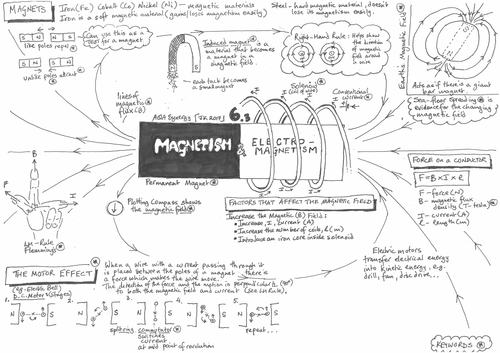 MAGNETS
Iron (Fe) Cobalt (Co) Nickel (Ni) - Magnetic materials
Iron is a soft magnetic material (gains/loses magnetism easily)
Steel - hard magnetic material doesn't
lose its magnetism easily.
S N N S
like poles repel
N S N S
unlike poles attract
Can use this as a
TEST for a magnet
Induced magnet
is a
material that becomes
a magnet in a
magnetic field
each tack becomes
a small magnet
Right-Hand Rule: helps show
the direction
of magnetic
field around
a wire
Earth's Magnetic Field
Acts as if there is a giant
bar magnet
Sea-floor Spreading is
evidence for the changing
magnetic field
lines of
magnetic
flux (B)
Solenoid
(coil of wire)
Conventional
current
I
AQA Synergy
6.3
MAGNETISM & ELECTRO-
MAGNETISM
Permanent Magnet
Plotting Compass shows
the magnetic field
FACTORS THAT AFFECT THE MAGNETIC FIELD
Increase the Magnetic (B) Field:
• Increase, I, current (A)
• Increase the number of coils,
• Introduce an iron core inside solenoid
FORCE ON A CONDUCTOR
F = B x I x l
F - force (N)
B - magnetic flux
density (T - tesla)
I - current (A)
L - length (m)
B
F
I
Left-Rule
Flemmings
THE MOTOR EFFECT
When a wire with a current passing through it
is placed between the poles of a magnet there is
a force which makes the wire move.
The direction of the force and the motion is perpendicular (90°)
to both the magnetic field and current (see LH Rule).
(eg. Electric Bell)
D.C. Motor (Stages)
1. 2. 3. 4. 5.
N S N S N S N S N S
split ring commutator
switches
current
at mid point of revolution
repeat...
Electric motors
transfer electrical energy
into kinetic energy, e.g.
drill, fan, disc drive...
KEYWORDS